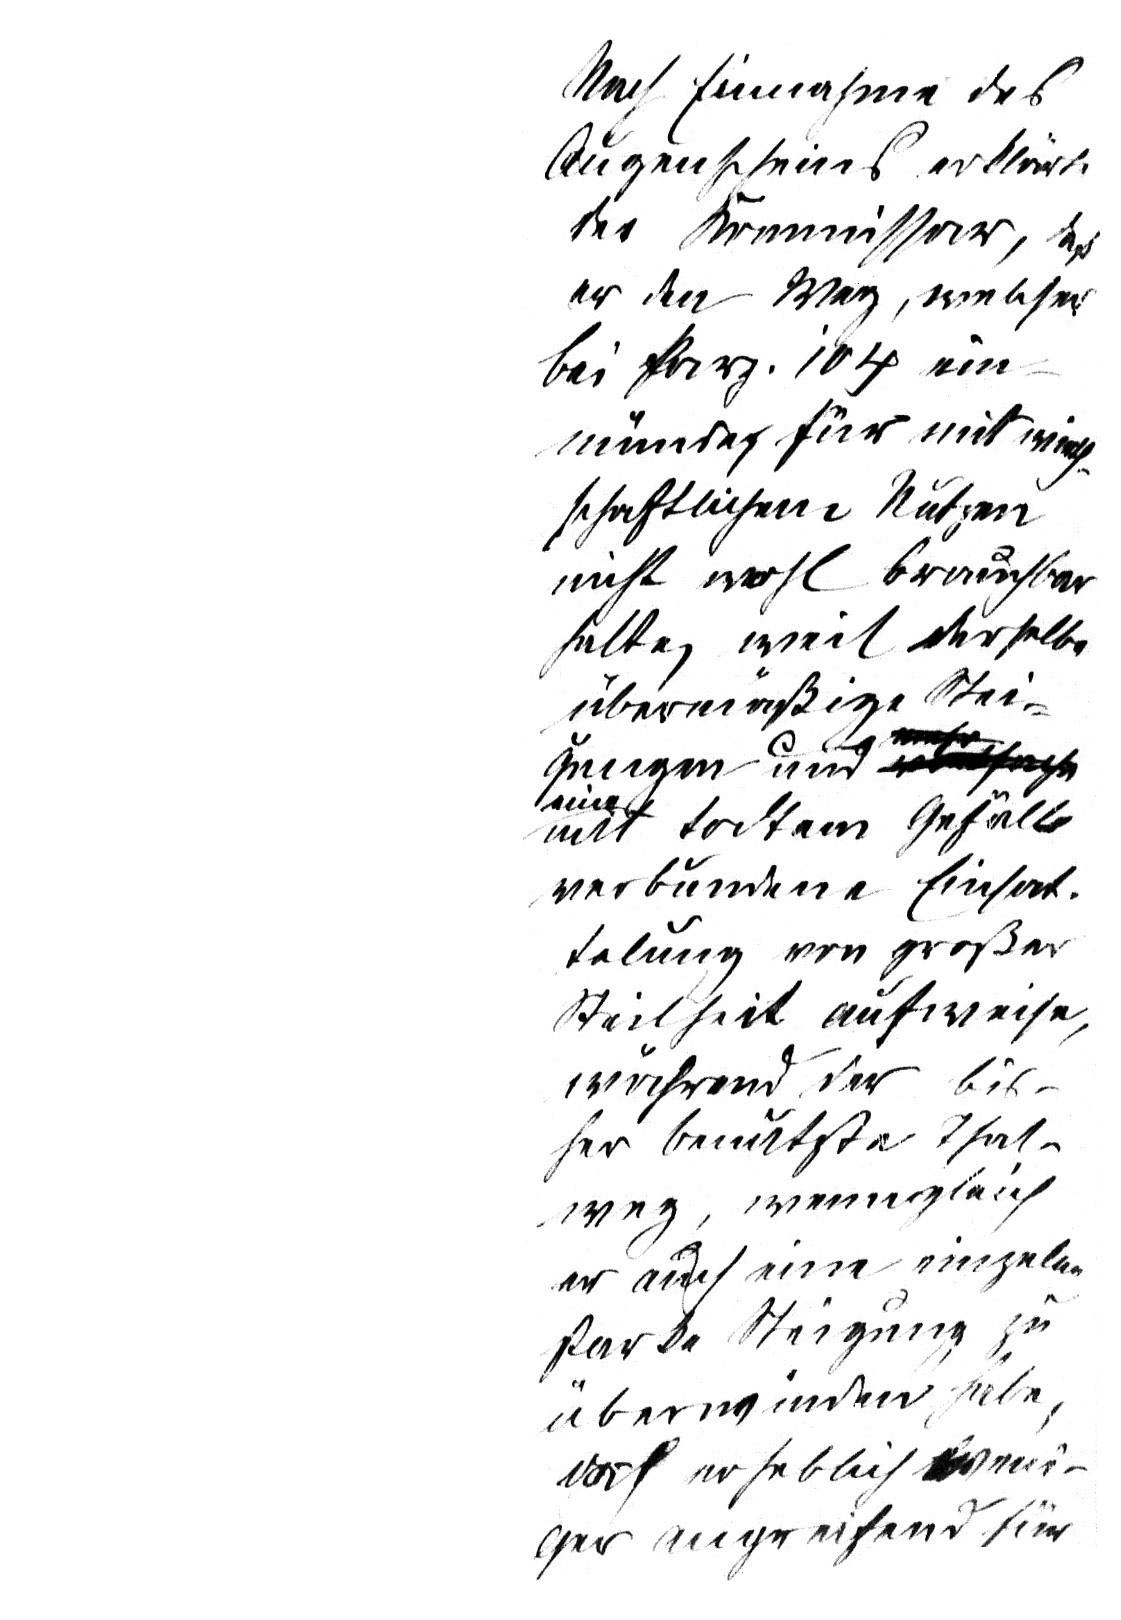 Nach Einnahme des
Augenscheins erklärte
der Kommissar, daß
er den Weg, welcher
bei Parz. 104 ein-
münde, für mit wirth-
schaftlichem Nutzen
nicht wohl brauchbar
halte, weil derselbe
übermäßige Stei-
gungen und
eine
mit todtem Gefälle
verbundene Einsat-
telung von großer
Steilheit aufweise,
während der bis-
her benützte Thal-
weg, wenngleich
er auch eine einzelne
starke Steigung zu
überwinden habe,
doch erheblich weni-
ger angreifend für